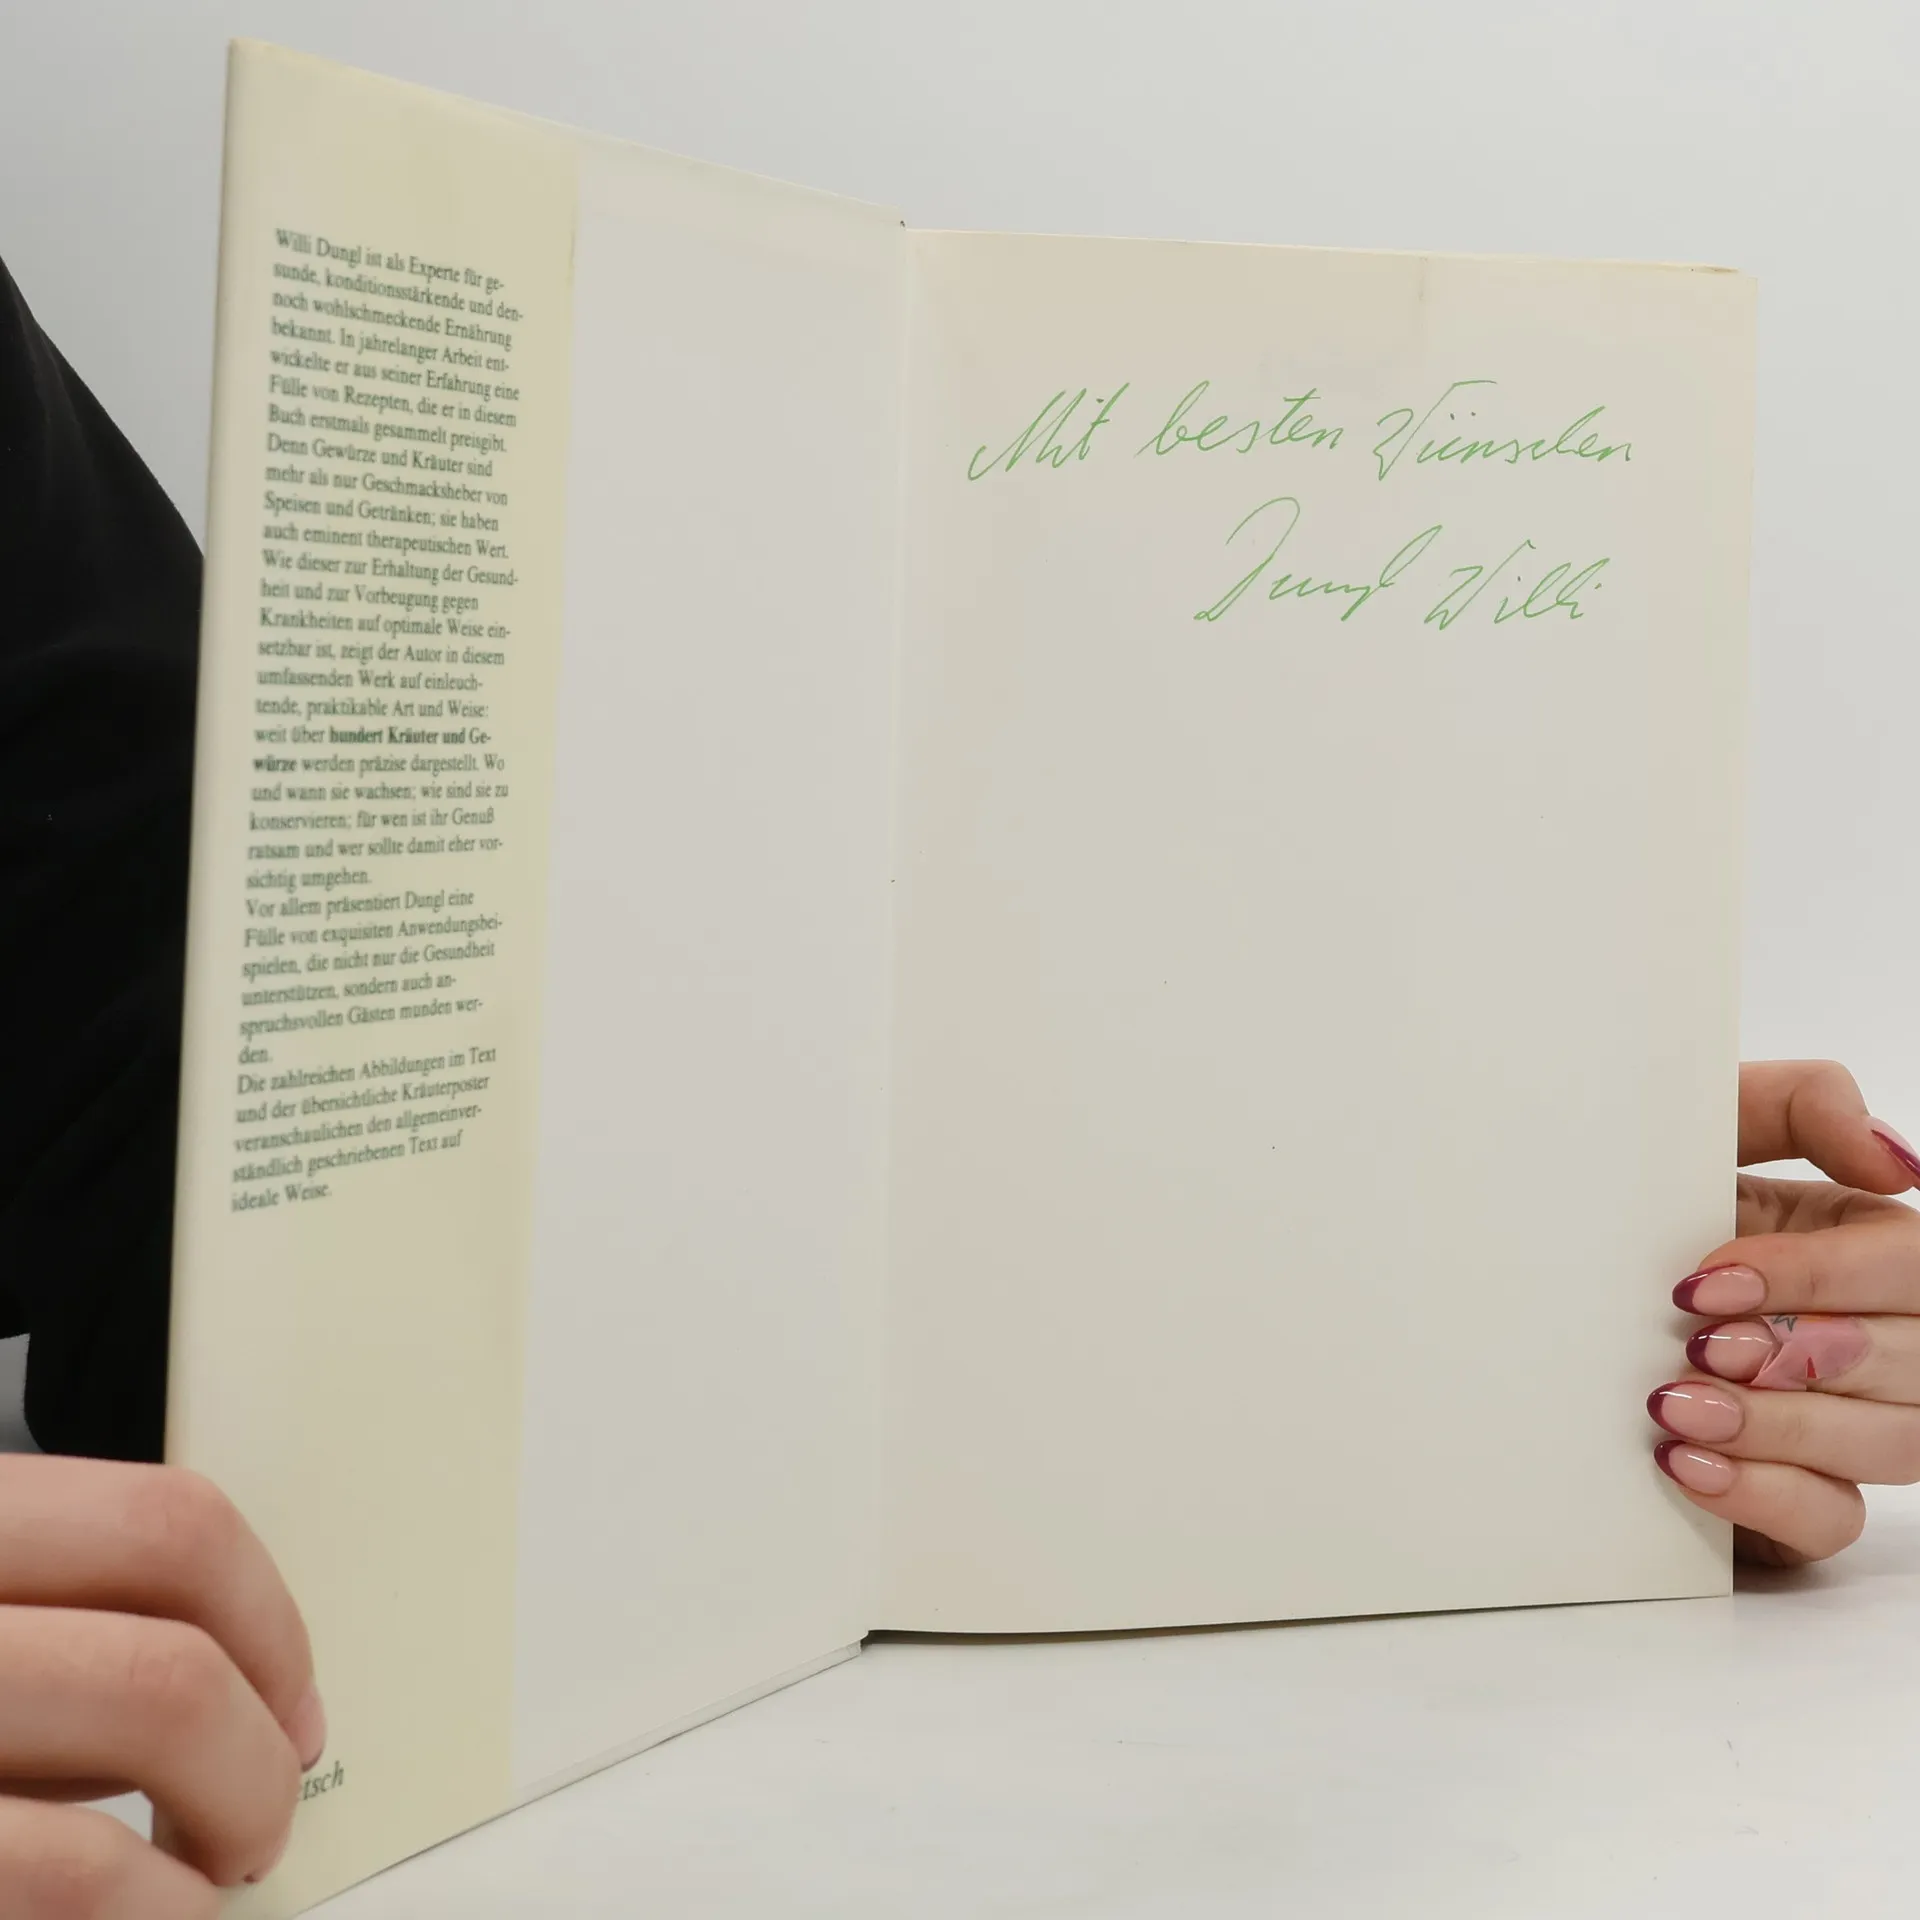 Willi Dungl ist als Experte für ge-
sunde, konditionsstärkende und den-
noch wohlschmeckende Ernährung
bekannt. In jahrelanger Arbeit ent-
wickelte er aus seiner Erfahrung eine
Fülle von Rezepten, die er in diesem
Buch erstmals gesammelt preisgibt.
Denn Gewürze und Kräuter sind
mehr als nur Geschmacksheber von
Speisen und Getränken; sie haben
auch eminent therapeutischen Wert.
Wie dieser zur Erhaltung der Gesund-
heit und zur Vorbeugung gegen
Krankheiten auf optimale Weise ein-
setzbar ist, zeigt der Autor in diesem
umfassenden Werk auf einleuch-
tende, praktikable Art und Weise:
weit über hundert Kräuter und Ge-
würze werden präzise dargestellt. Wo
und wann sie wachsen; wie sind sie zu
konservieren; für wen ist ihr Genuß
ratsam und wer sollte damit eher vor-
sichtig umgehen.
Vor allem präsentiert Dungl eine
Fülle von exquisiten Anwendungsbei-
spielen, die nicht nur die Gesundheit
unterstützen, sondern auch an-
spruchsvollen Gästen munden wer-
den.
Die zahlreichen Abbildungen im Text
und der übersichtliche Kräuterposter
veranschaulichen den allgemeinver-
ständlich geschriebenen Text auf
ideale Weise.
Mit besten Wünschen
Dungl Willi